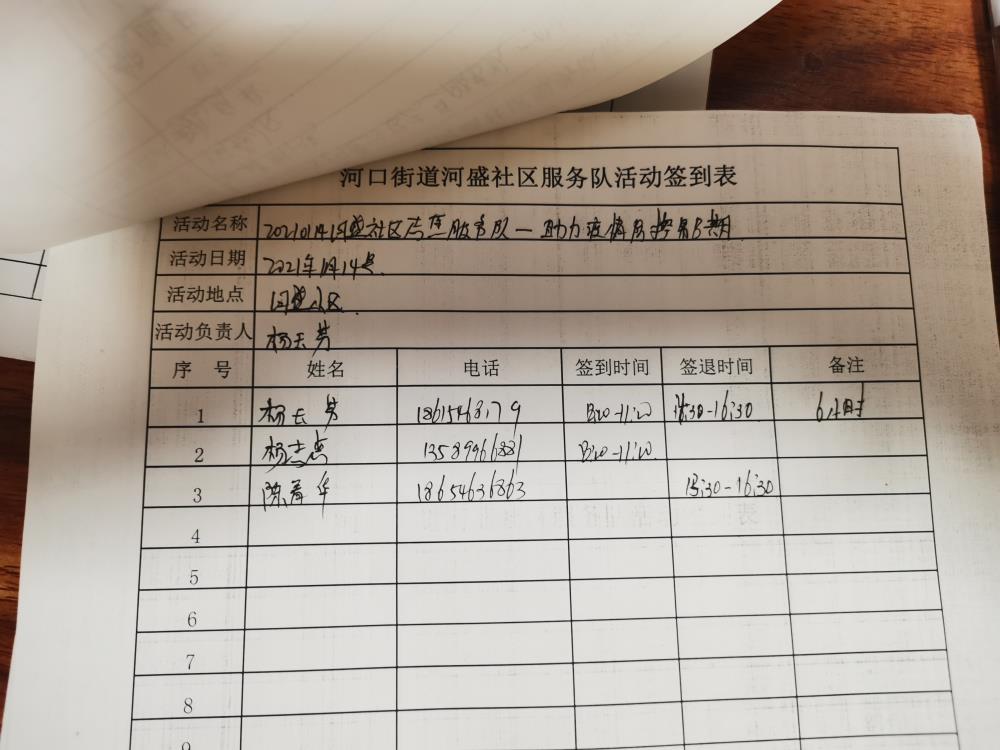 河口街道河盛社区服务队活动签到表
活动名称 20210114河盛社区志愿服务队一助力疫情防控
活动日期 2021年1月14号
活动地点 河盛社区
活动负责人 杨云芳
序 号 姓名 电话 签到时间 签退时间 备注
1 杨云芳 :30-16:30 6小时
2 杨志 13589966881
3 陈春华 18654636863 13:30-16:30
4
5
6
7
8
9